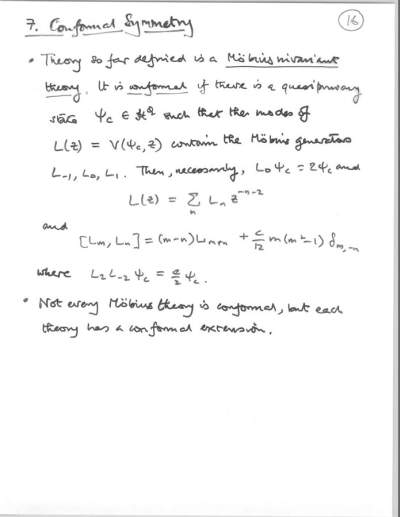 7. Conformal Symmetry
16
• Theory so far defined is a Möbius invariant
theory. It is conformal if there is a quasiprimary
state ψ_c ∈ ℋ^Q such that the modes of
L(z) = V(ψ_c, z) contain the Möbius generators
L₋₁, L₀, L₁. Then, necessarily, L₀ψ_c = 2ψ_c and
L(z) = Σ_n L_n z^{-n-2}
and
[L_m, L_n] = (m-n)L_{m+n} + c/12 m(m²-1) δ_{m,-n}
where L₂L₋₂ψ_c = c/2 ψ_c.
• Not every Möbius theory is conformal, but each
theory has a conformal extension.